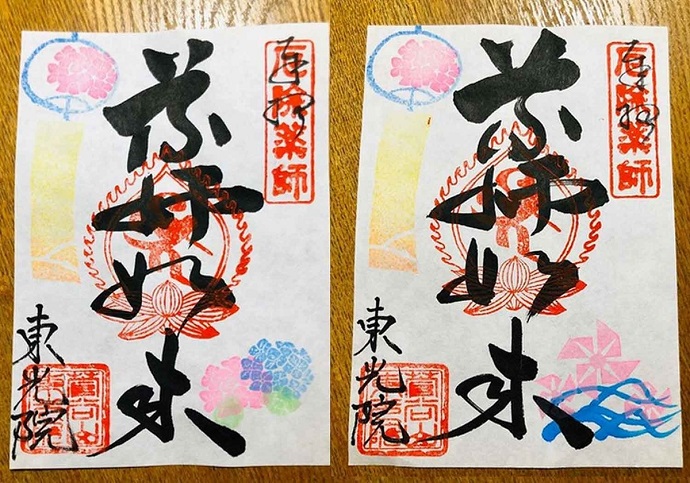 奉拝
厄除薬師
薬師如来
東光院
奉拝
厄除薬師
薬師如来
東光院